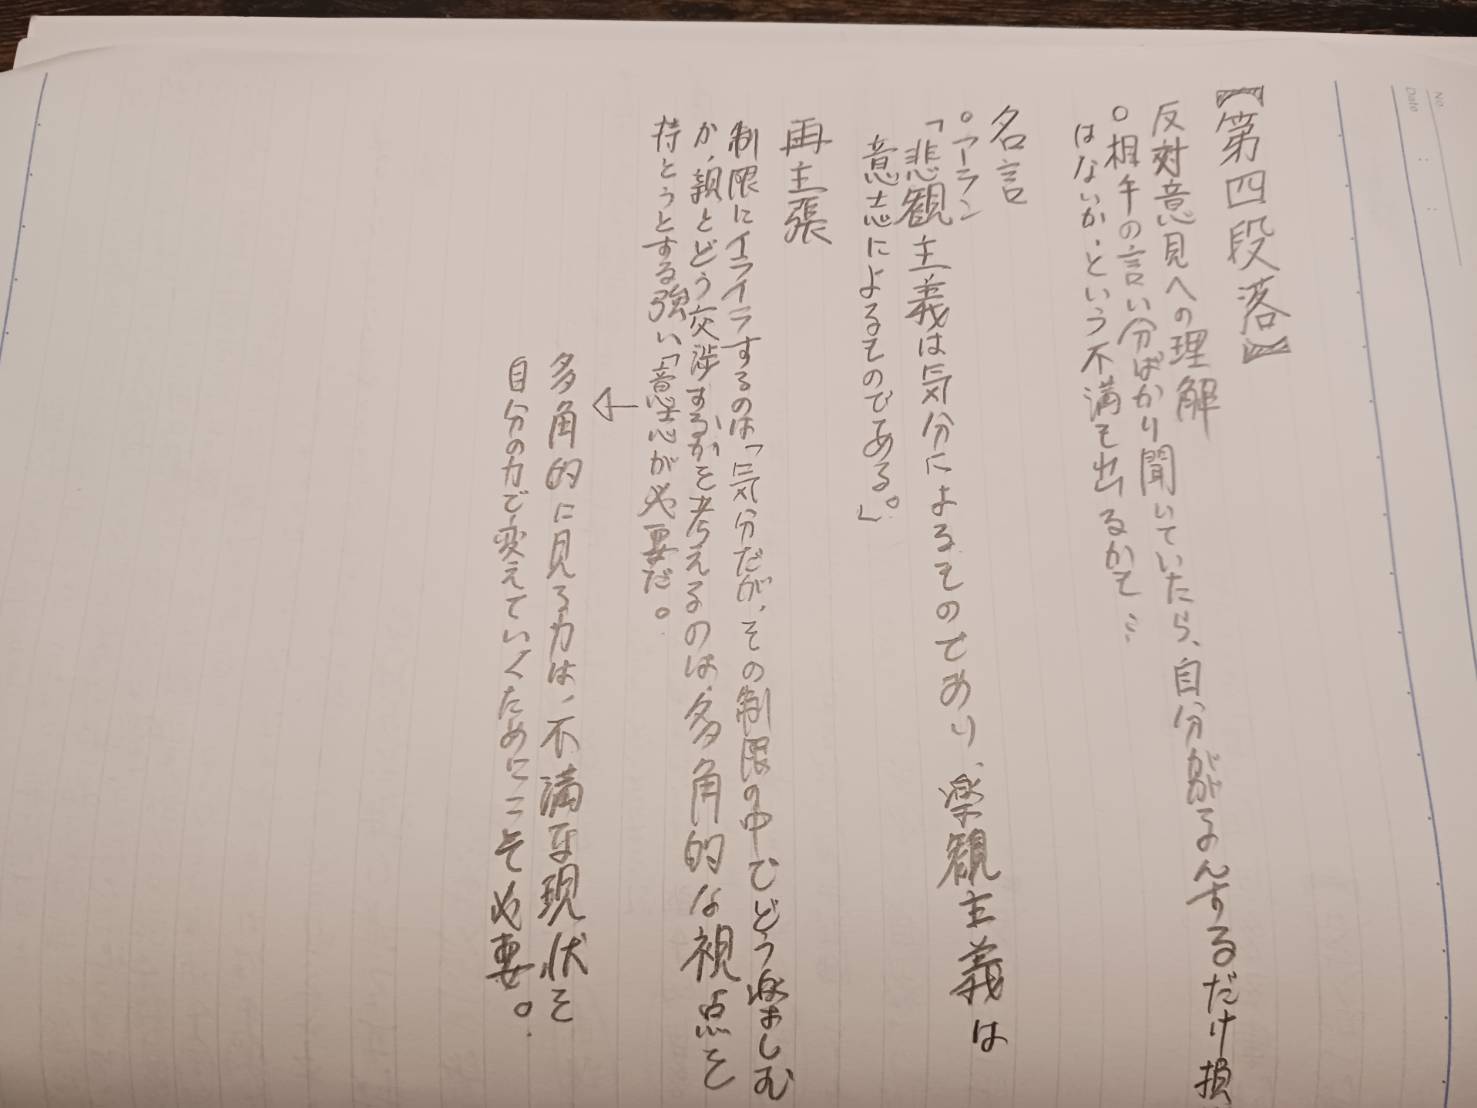 No.
Date
【第四段落】
反対意見への理解
○相手の言い分ばかり聞いていたら、自分ががまんするだけ損
はないか、という不満も出るかも…
名言
○アーラン
「悲観主義は気分によるものであり、楽観主義は
意志によるものである。」
再主張
制限にイライラするのは「気分だが、その制限の中でどう楽しむ
か、親とどう交渉するかを考えるのは、多角的な視点を
持とうとする強い「意志が必要だ。
↓
多角的に見る力は、不満な現状を
自分の力で変えていくためにこそ必要。